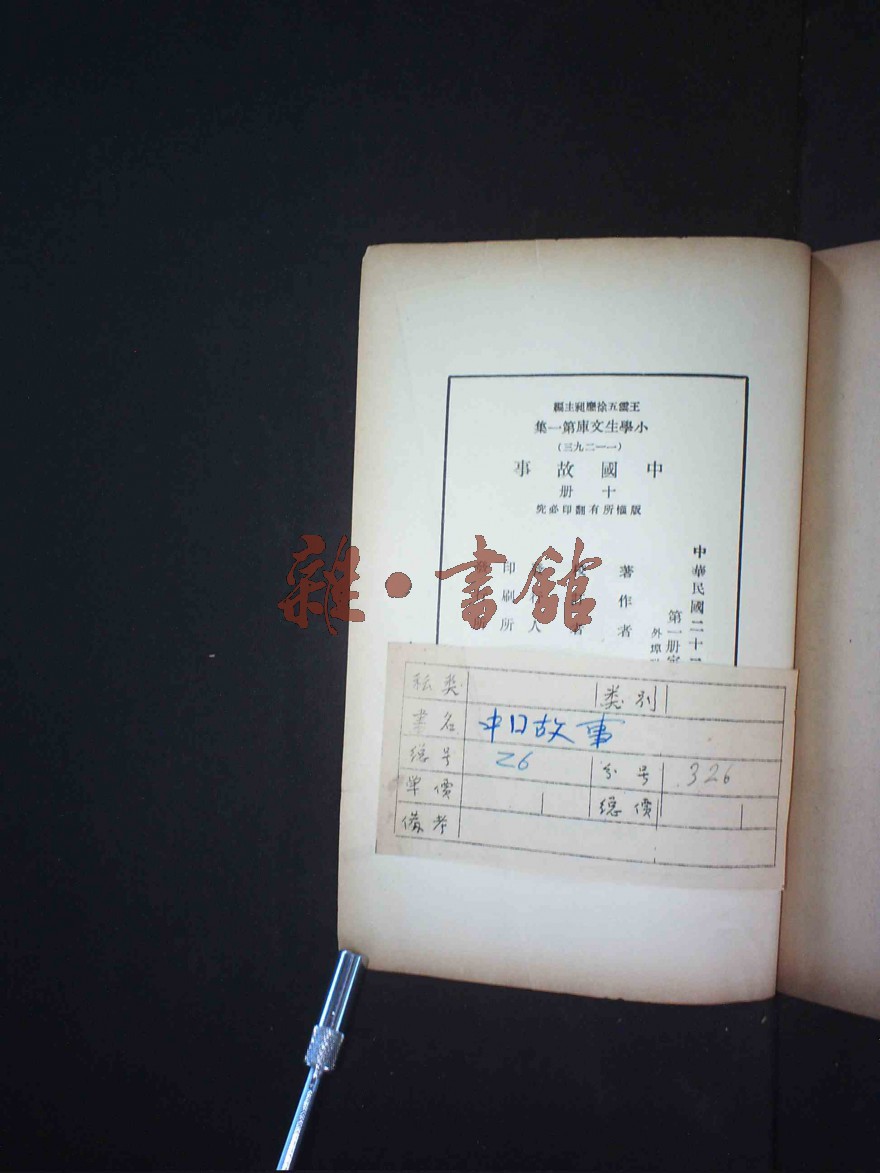 王雲五徐應昶主編
小學生文庫第一集
(一一二九三)
中國故事
十册
版權所有翻印必究
中華民國二十
第一册
外埠
著作者
印刷所
雜·書館
类别
書名 中日故事
總号 26 分号 326
单價 總價
備考